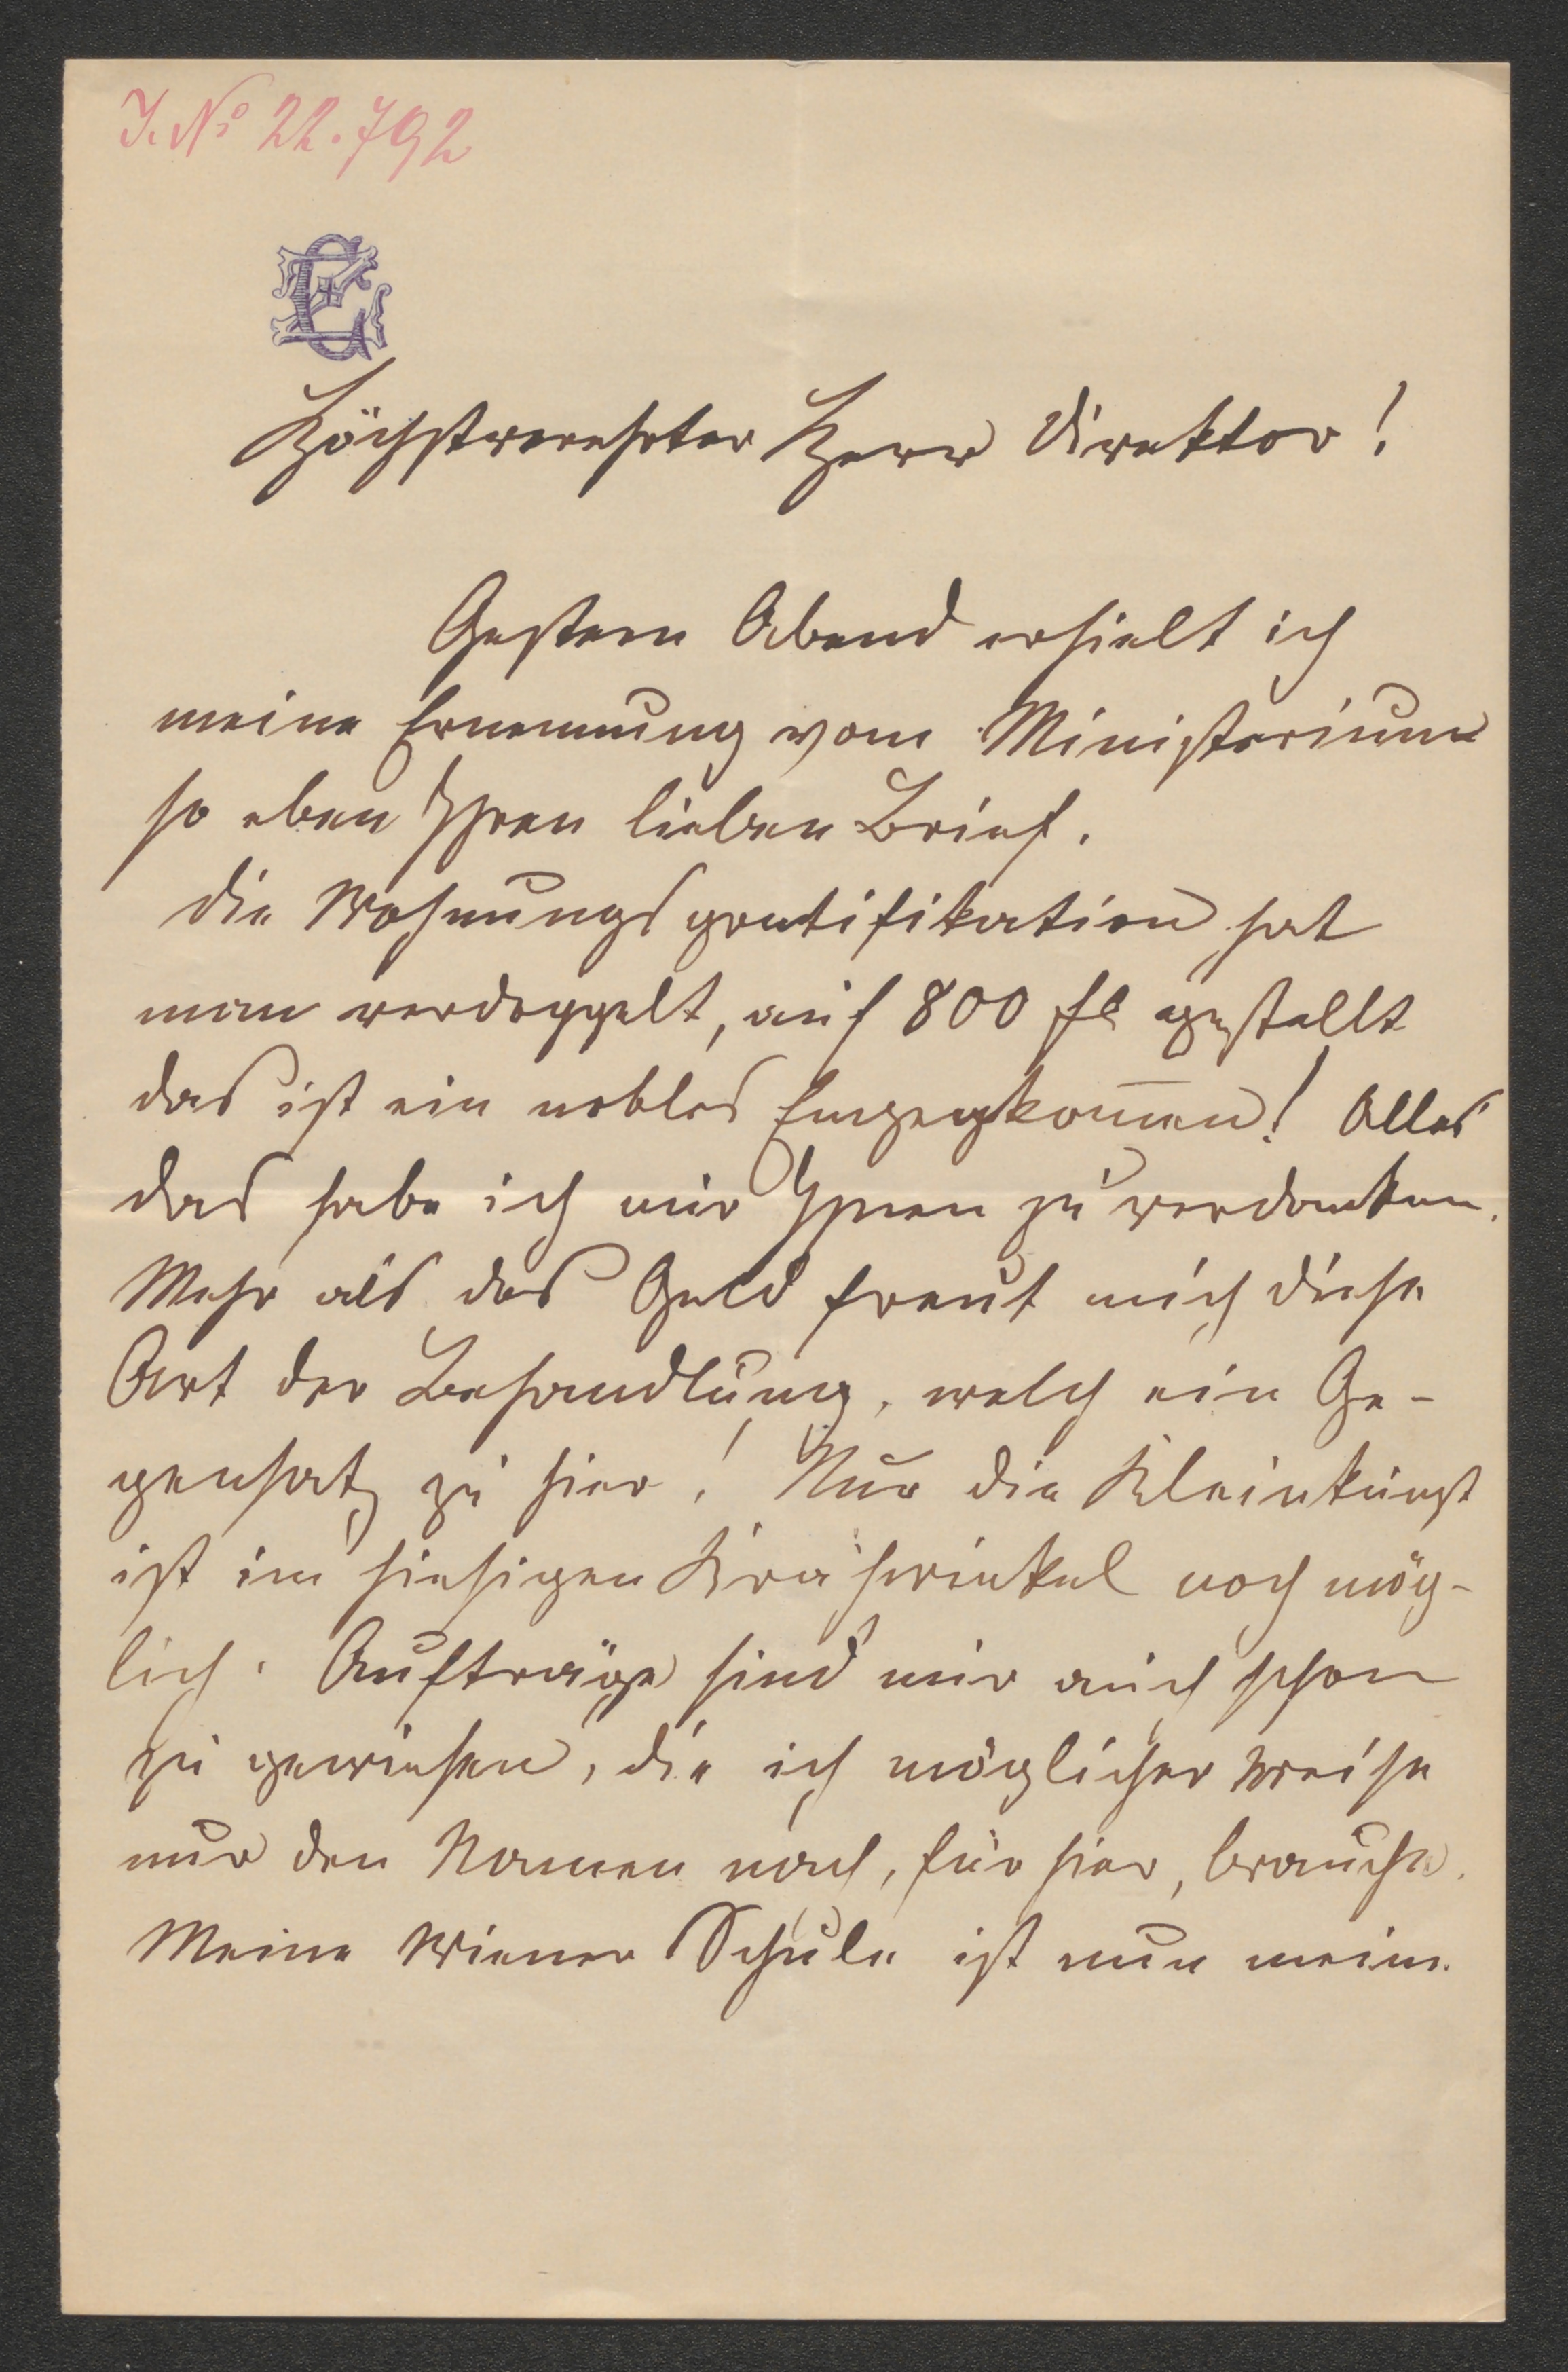 J. No 22.792
Höchstverehrter Herr Direktor!
Gestern Abend erhielt ich
meine Ernennung vom Ministerium
so eben Ihren lieben Brief.
Die Wohnungsgratifikation hat
man verdoppelt, auf 800 fl gestellt
das ist ein nobles Entgegenkom̅en! Alles
das habe ich nur Ihnen zu verdanken.
Mehr als das Geld freut mich diese
Art der Behandlung, welch ein Ge-
gensatz zu hier! Nur die Kleinkunst
ist im hiesigen Krähwinkel noch mög-
lich. Aufträge sind mir auch schon
zu gewiesen, die ich möglicher weise
nur den Namen nach, für hier, brauche.
Meine Wiener Schule ist nun meine